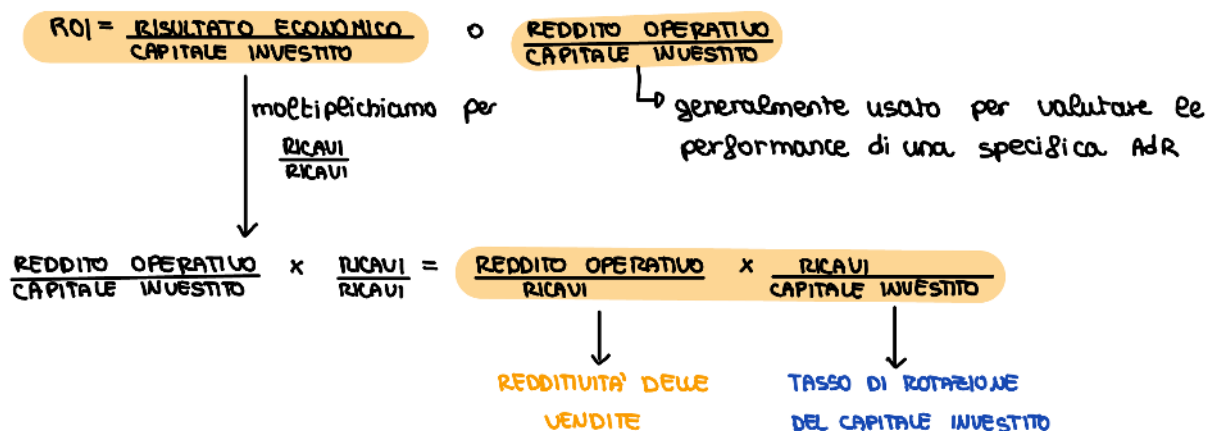 ROI = RISULTATO ECONOMICO / CAPITALE INVESTITO o REDDITO OPERATIVO / CAPITALE INVESTITO
moltiplichiamo per
RICAVI / RICAVI
generalmente usato per valutare le
performance di una specifica AdR
REDDITO OPERATIVO / CAPITALE INVESTITO x RICAVI / RICAVI = REDDITO OPERATIVO / RICAVI x RICAVI / CAPITALE INVESTITO
REDDITIVITA' DELLE
VENDITE
TASSO DI ROTAZIONE
DEL CAPITALE INVESTITO